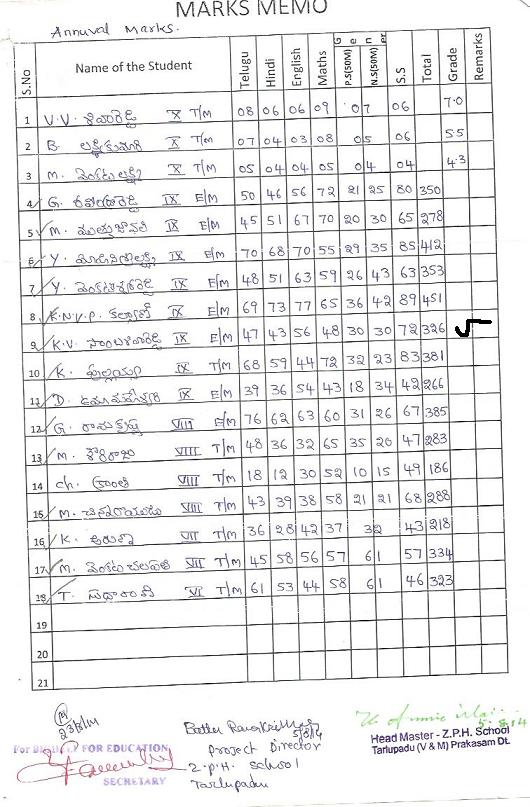 MARKS MEMO
Annuval Marks.
S.No Name of the Student Telugu Hindi English Maths Gener P.S(50M) N.S(50M) S.S Total Grade Remarks
1 V.V. X T/M 08 06 06 09 07 06 7.0
2 B. లక్ష్మికుమారి X T/M 07 04 03 08 05 06 5.5
3 M. వెంకటలక్ష్మి X T/M 05 04 04 05 04 04 4.3
4 G. IX E/M 50 46 56 72 21 25 80 350
5 M. IX E/M 45 51 67 70 20 30 65 278
6 Y. IX E/M 70 68 70 55 29 35 85 412
7 Y. IX E/M 48 51 63 59 26 43 63 353
8 K.N.V.P. కల్యాణ్ IX E/M 69 73 77 65 36 42 89 451
9 K.V. సాంబశివారెడ్డి IX E/M 47 43 56 48 30 30 72 326 √
10 K. IX T/M 68 59 44 72 32 23 83 381
11 D. ఉమామహేశ్వరి IX T/M 39 36 54 43 18 34 42 266
12 G. రామకృష్ణ VIII E/M 76 62 63 60 31 26 67 385
13 M. శౌరిరాజు VIII T/M 48 36 32 65 35 20 47 283
14 Ch. క్రాంతి VIII T/M 18 12 30 52 10 15 49 186
15 M. చిననాయుడు VIII T/M 43 39 38 58 21 21 68 288
16 K. అరుణ VII T/M 36 28 42 37 32 43 218
17 M. వెంకట చలపతి VII T/M 45 58 56 57 61 57 334
18 T. సుధారాణి VI T/M 61 53 44 58 61 46 323
19
20
21
23/8/14
5/8/14
project Director
Z.p.H. School
Tarlupadu
5.8.14
Head Master - Z.P.H. School
Tarlupadu (V & M) Prakasam Dt.
FOR EDUCATION
SECRETARY